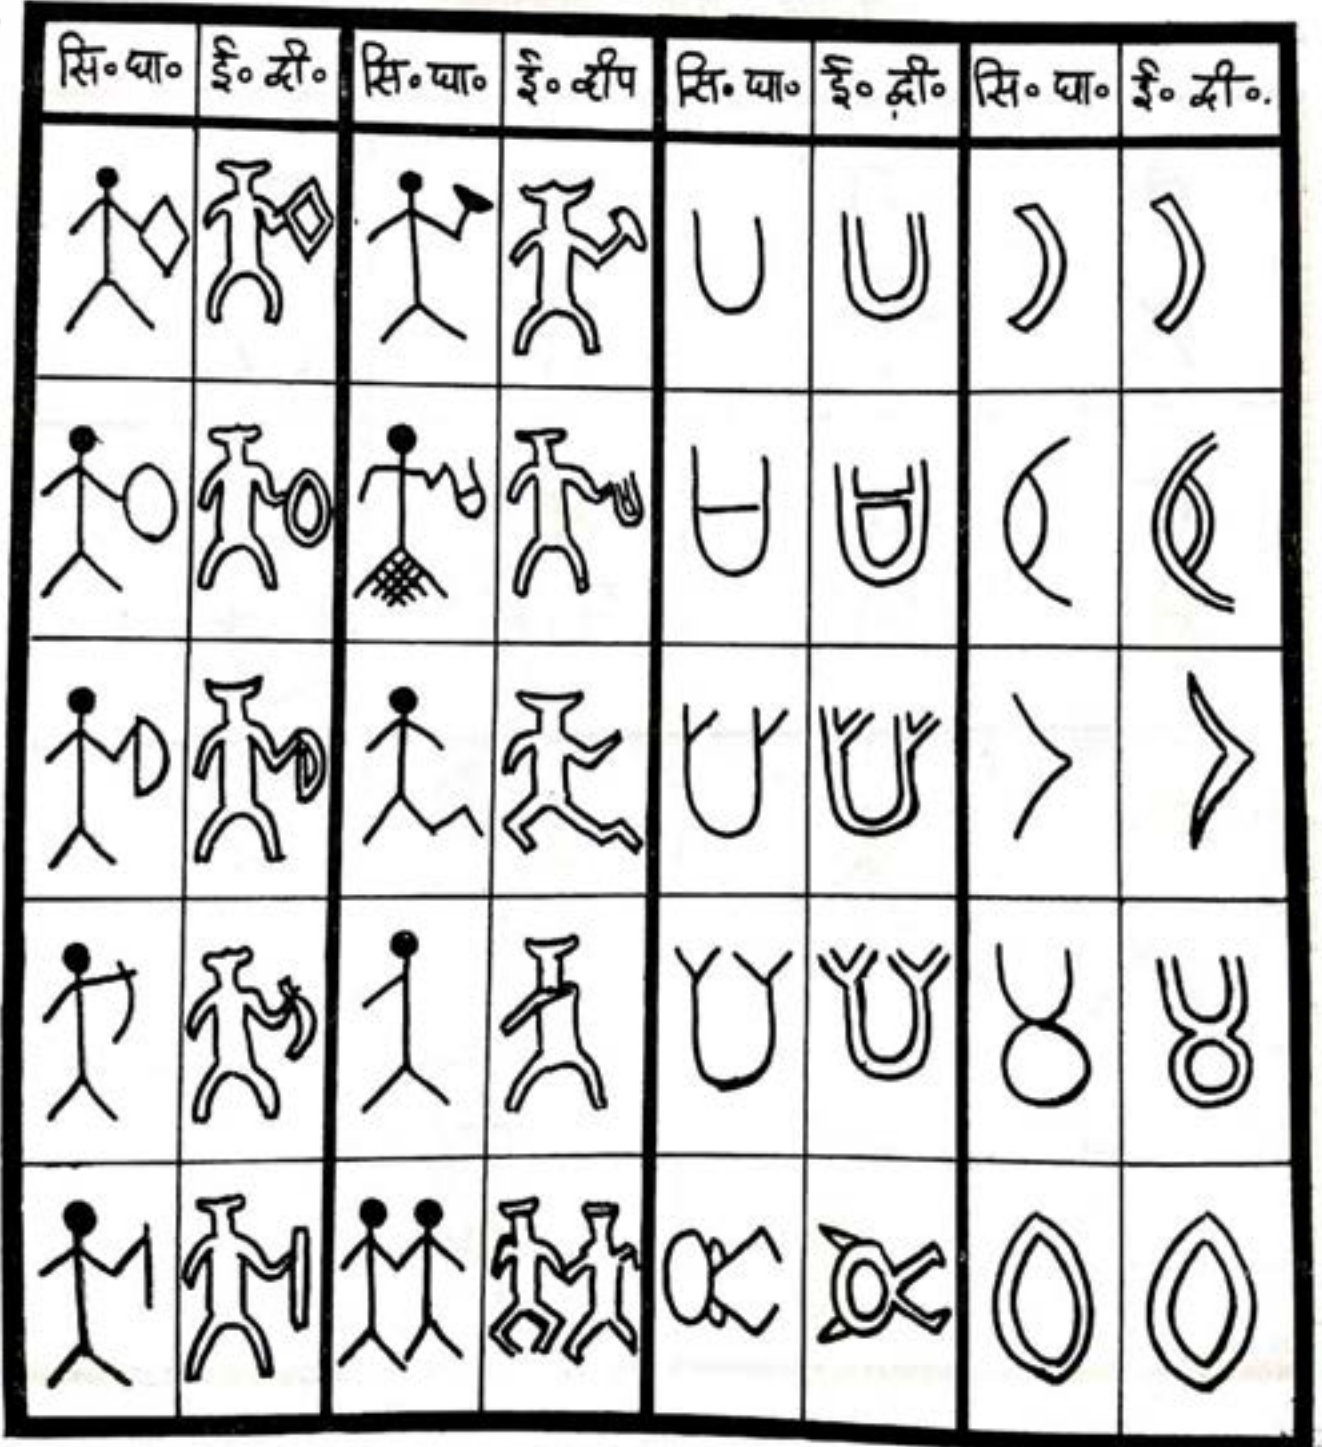 सि॰ घा॰ ई॰ दी॰ सि॰ घा॰ ई॰ द्वीप सि॰ घा॰ ई॰ द्वी॰ सि॰ घा॰ ई॰ दी॰.